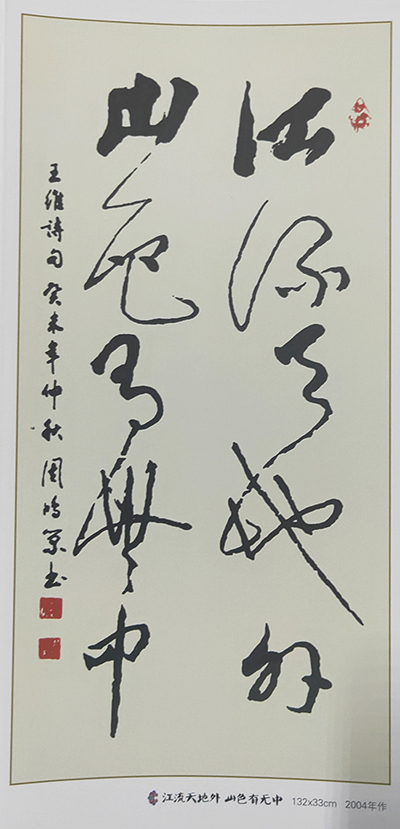 江流天地外
山色有無中
王維詩句癸未年仲秋周鸣業书
江流天地外 山色有无中 132x33cm 2004年作